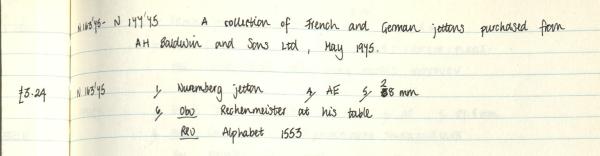 N163'45- N 177'45 A collection of French and German jettons purchased from
AH Baldwin and Sons Ltd, May 1945.
£3-24 N 163'45 1, Nuremberg jetton 4, AE 5, 28 mm
6, Obv Rechenmeister at his table
Rev Alphabet 1553